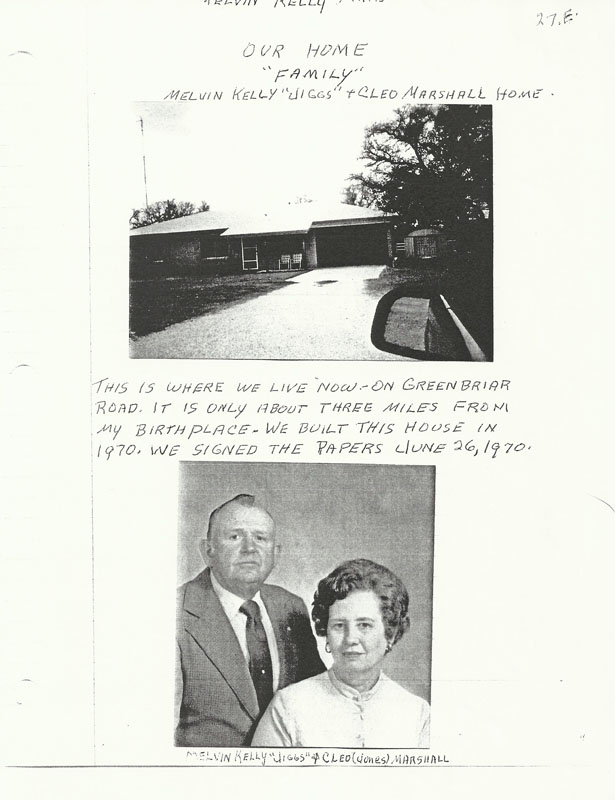 MELVIN KELLY
27.E.
OUR HOME
"FAMILY"
MELVIN KELLY "JIGGS" + CLEO MARSHALL HOME.
THIS IS WHERE WE LIVE NOW.-ON GREENBRIAR
ROAD. IT IS ONLY ABOUT THREE MILES FROM
MY BIRTHPLACE-WE BUILT THIS HOUSE IN
1970. WE SIGNED THE PAPERS JUNE 26,1970.
MELVIN KELLY "JIGGS" & CLEO (JONES) MARSHALL